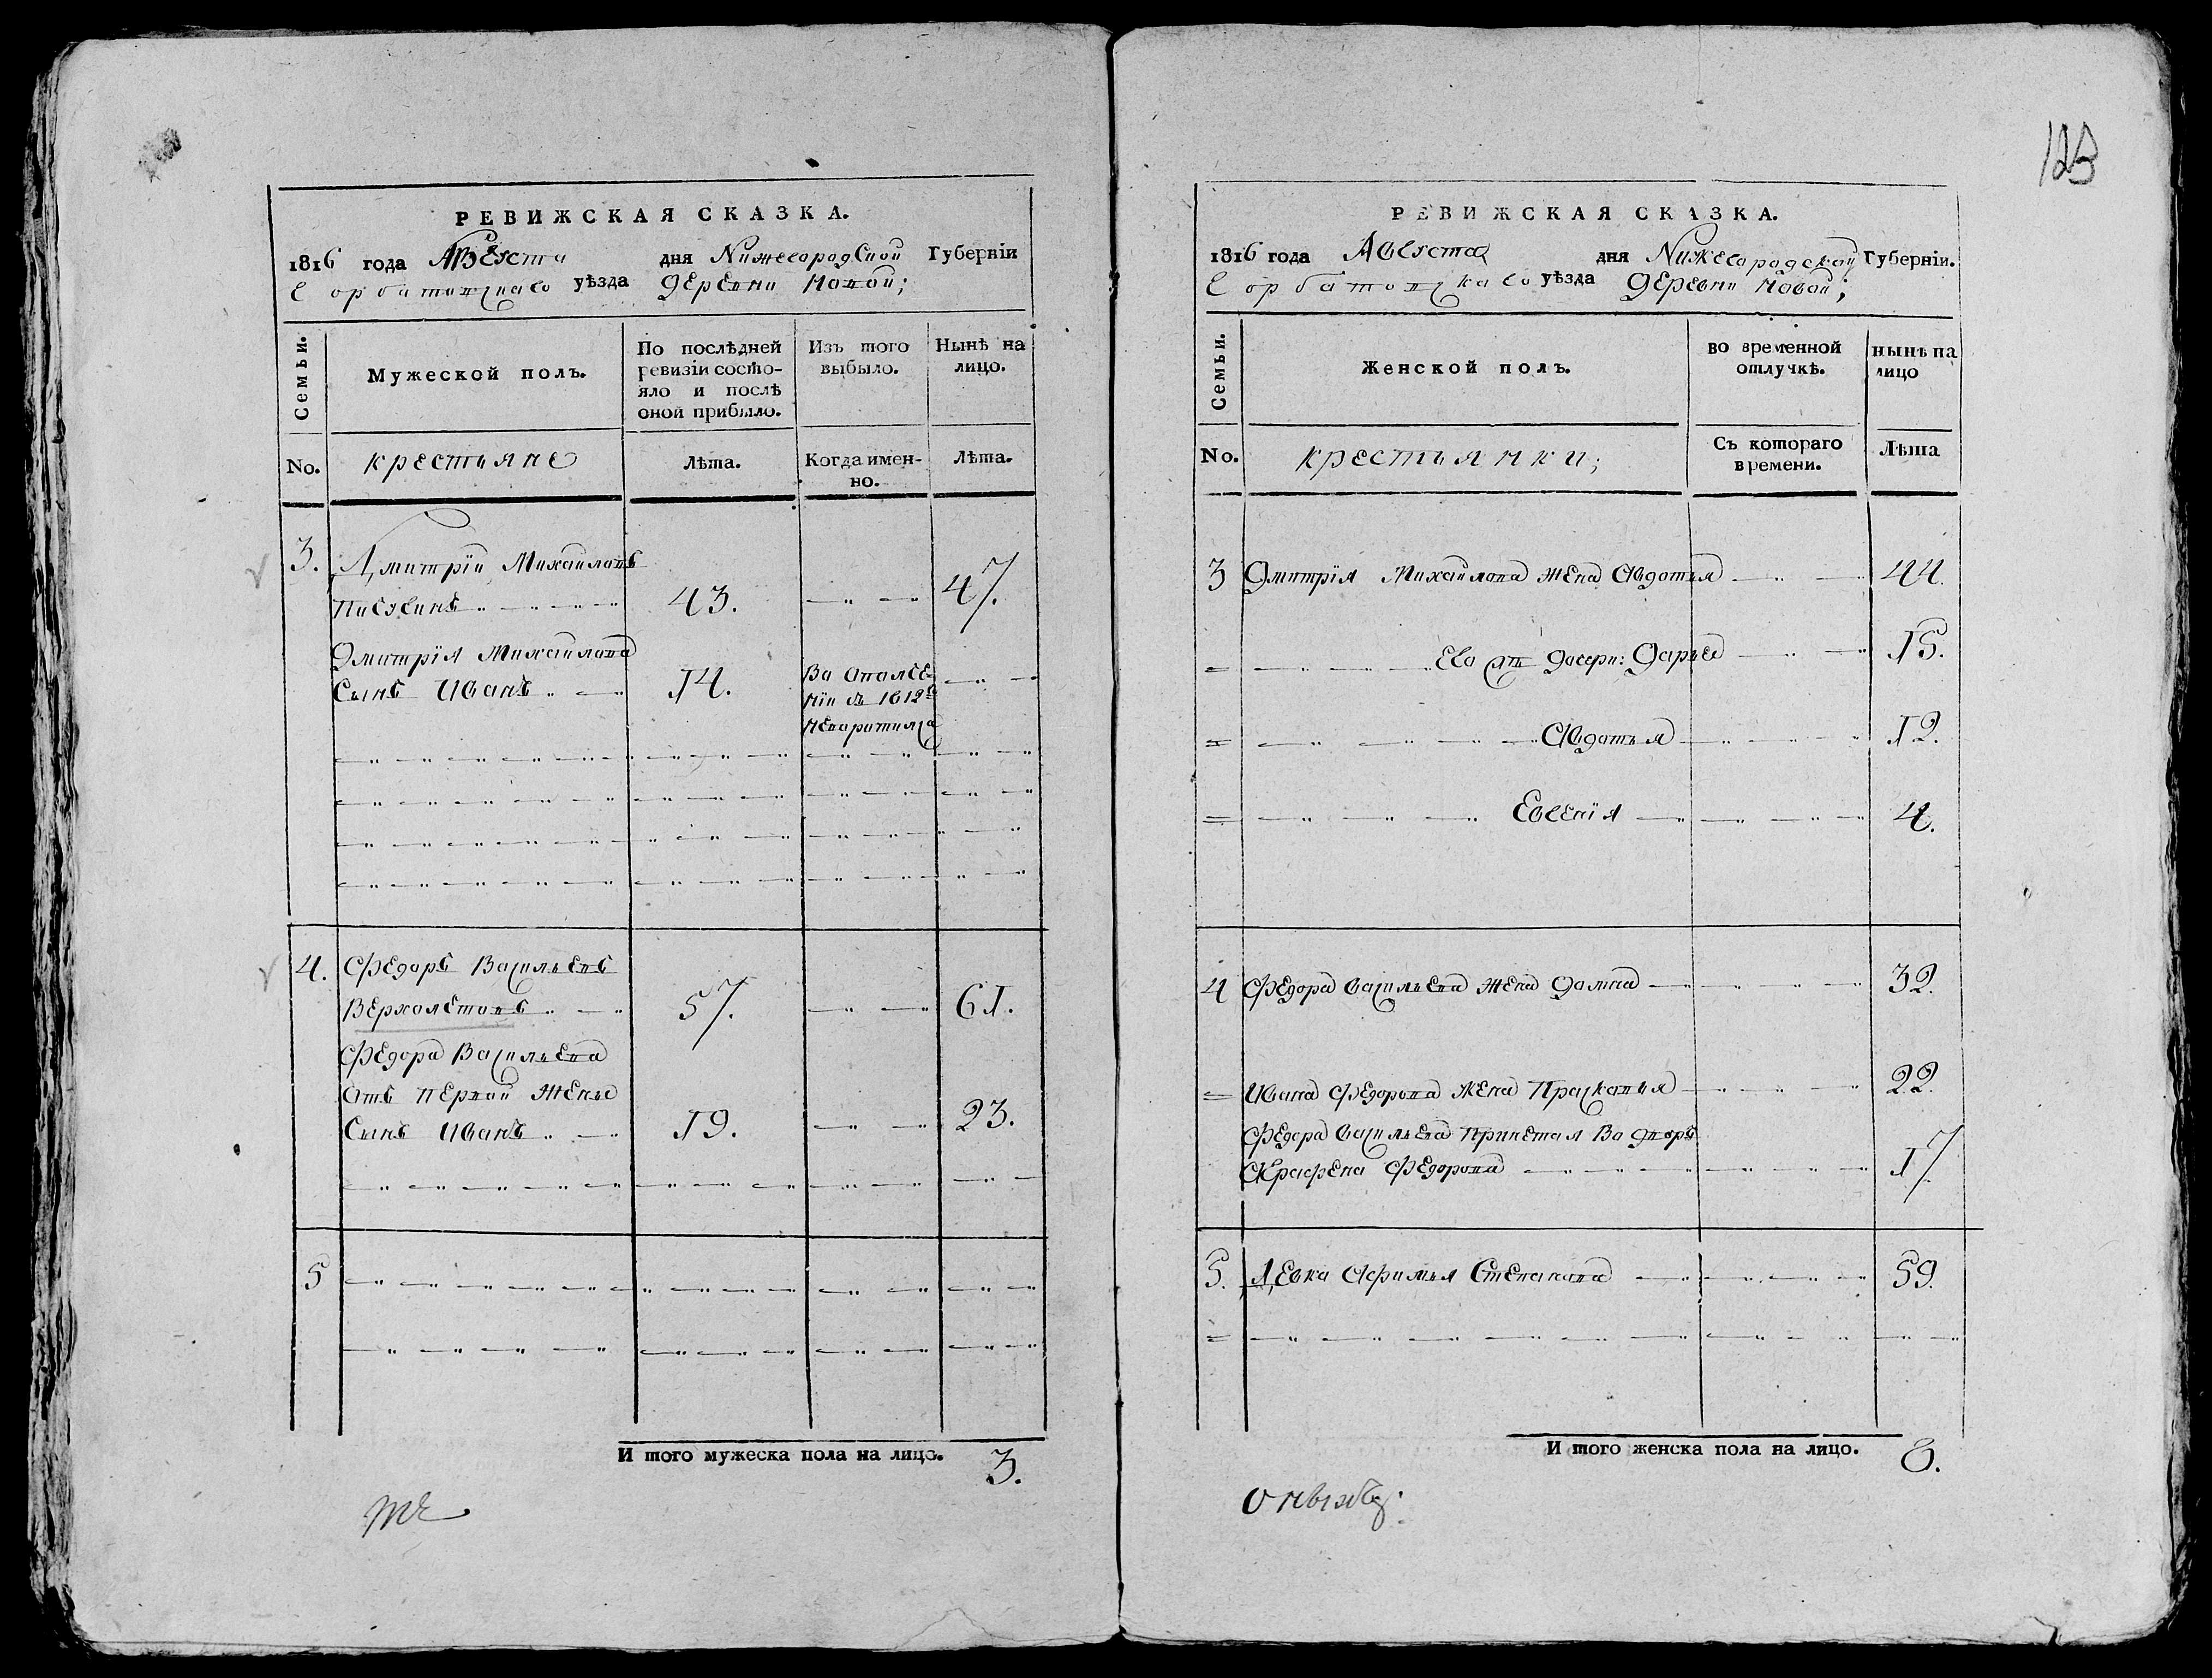 123
РЕВИЖСКАЯ СКАЗКА.
1816 года Августа дня Нижегородской Губерніи
Горбатовскаго уѣзда Деревни Новой;
Семьи.
Мужеской полъ.
По послѣдней
ревизіи состо-
яло и послѣ
оной прибыло.
Изъ того
выбыло.
Нынѣ на
лицо.
No.
крестьяне
лѣта.
Когда имен-
но.
лѣта.
3. Дмитрїй Михайловъ
43. 47.
Дмитрїя Михайлова
Сынъ Иванъ 14. Во ополче-
нїи въ 1812г
невратился
4. Федоръ Васильевъ
Верхолетовъ 57. 61.
Федора Васильева
отъ первой жены
Сынъ Иванъ 19. 23.
5
И того мужеска пола на лицо. 3.
РЕВИЖСКАЯ СКАЗКА.
1816 года Августа дня Нижегородской Губерніи.
Горбатовскаго уѣзда Деревни Новой;
Семьи.
Женской полъ.
во временной
отлучкѣ.
нынѣ на
лицо
No.
крестьянки;
Съ котораго
времени.
Лѣта
3 Дмитрїя Михайлова жена Авдотья 44.
Его дочери: Дарья 15.
Авдотья 12.
Евгенїя 4.
4 Федора Васильева жена Домна 32.
Ивана Федорова жена Прасковья 22.
Федора Васильева принетая во дворъ
Аграфена Федорова 17
5. Девка Афимья Степанова 59.
И того женска пола на лицо. 8.